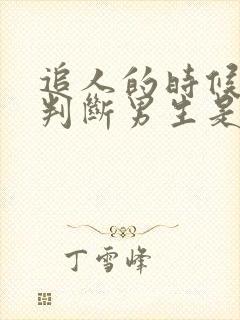 追人的時候
判斷男生是
丁雪峰